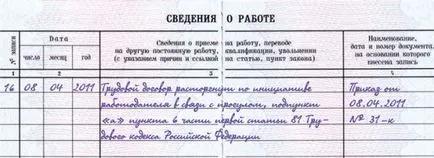 СВЕДЕНИЯ О РАБОТЕ
№ записи
Дата
число
месяц
год
Сведения о приеме на работу, переводе
на другую постоянную работу, квалификации, увольнении
(с указанием причин и ссылкой на статью, пункт закона)
Наименование,
дата и номер документа,
на основании которого
внесена запись
1 2 3 4
16 08 04 2011 Трудовой договор расторгнут по инициативе Приказ от
работодателя в связи с прогулом, подпункт 08.04.2011
«а» пункта 6 части первой статьи 81 Тру- № 31-к
дового кодекса Российской Федерации